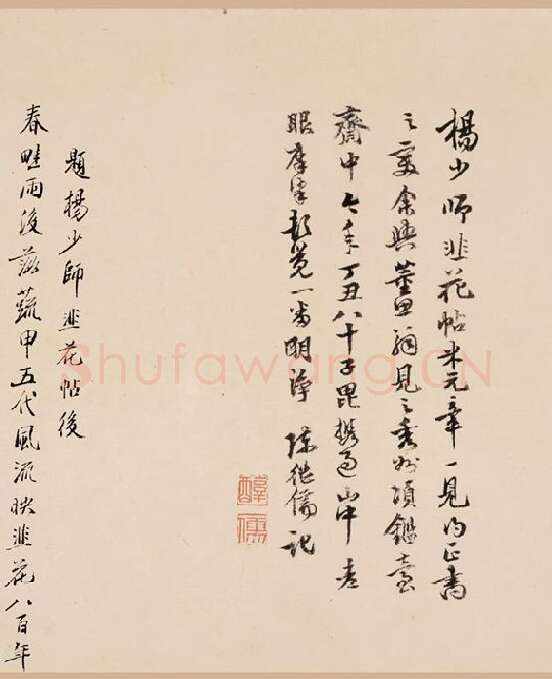 楊少師韭花帖米元章一見為正書
之變余與董思翁見之秀州項鑑臺
齋中今年丁丑八十子毘攜過山中老
眼摩挲頓覺一番明淨 陳繼儒記
醇儒
題楊少師韭花帖後
春畦雨後蔬甲五代風流映韭花八百年
Shufawang.CN